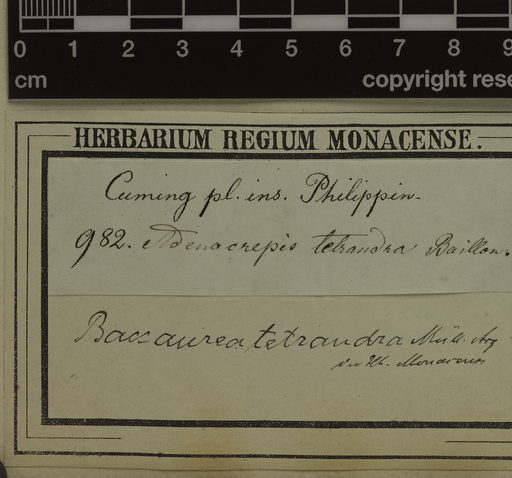 0 1 2 3 4 5 6 7 8 9
cm copyright rese
HERBARIUM REGIUM MONACENSE.
Cuming pl. ins. Philippin.
982. Adenacrepis tetrandra Baillon.
Baccaurea tetrandra Müll. Arg
in Hb. Monacens